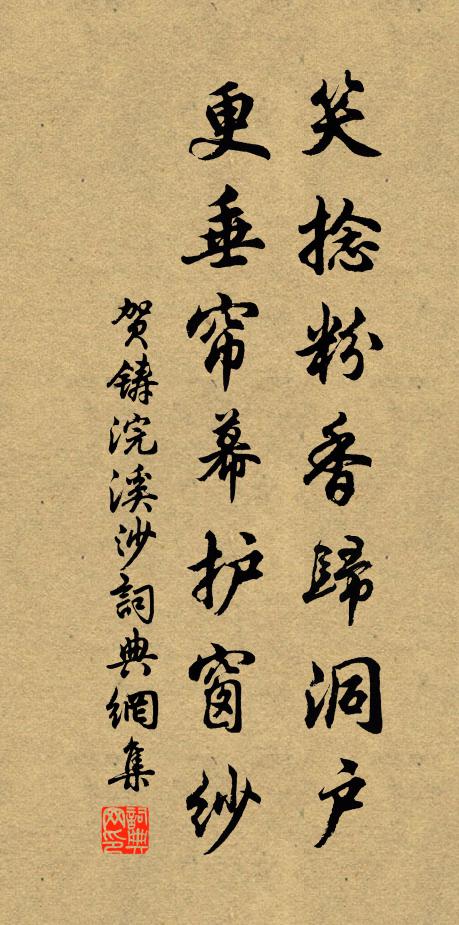 笑捻粉香歸洞户
更垂帘幕护窗纱
贺鑄浣溪沙詞典網集
詞典网印